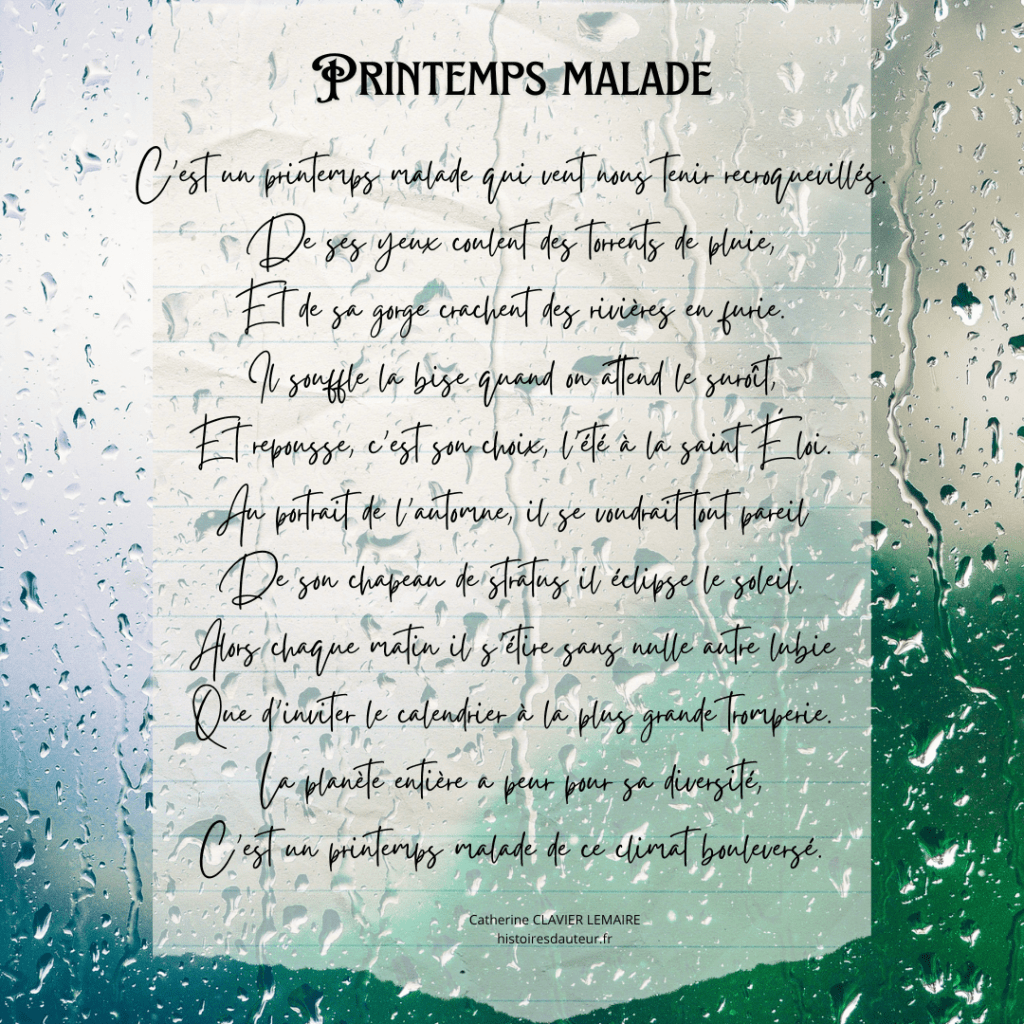 Printemps malade
C'est un printemps malade qui veut nous tenir recroquevillés.
De ses yeux coulent des torrents de pluie,
Et de sa gorge crachent des rivières en furie.
Il souffle la bise quand on attend le suroît,
Et repousse, c'est son choix, l'été à la saint Éloi.
Au portrait de l'automne, il se voudrait tout pareil
De son chapeau de stratus il éclipse le soleil.
Alors chaque matin il s'étire sans nulle autre lubie
Que d'inviter le calendrier à la plus grande tromperie.
La planète entière a peur pour sa diversité,
C'est un printemps malade de ce climat bouleversé.
Catherine CLAVIER LEMAIRE
histoiresdauteur.fr